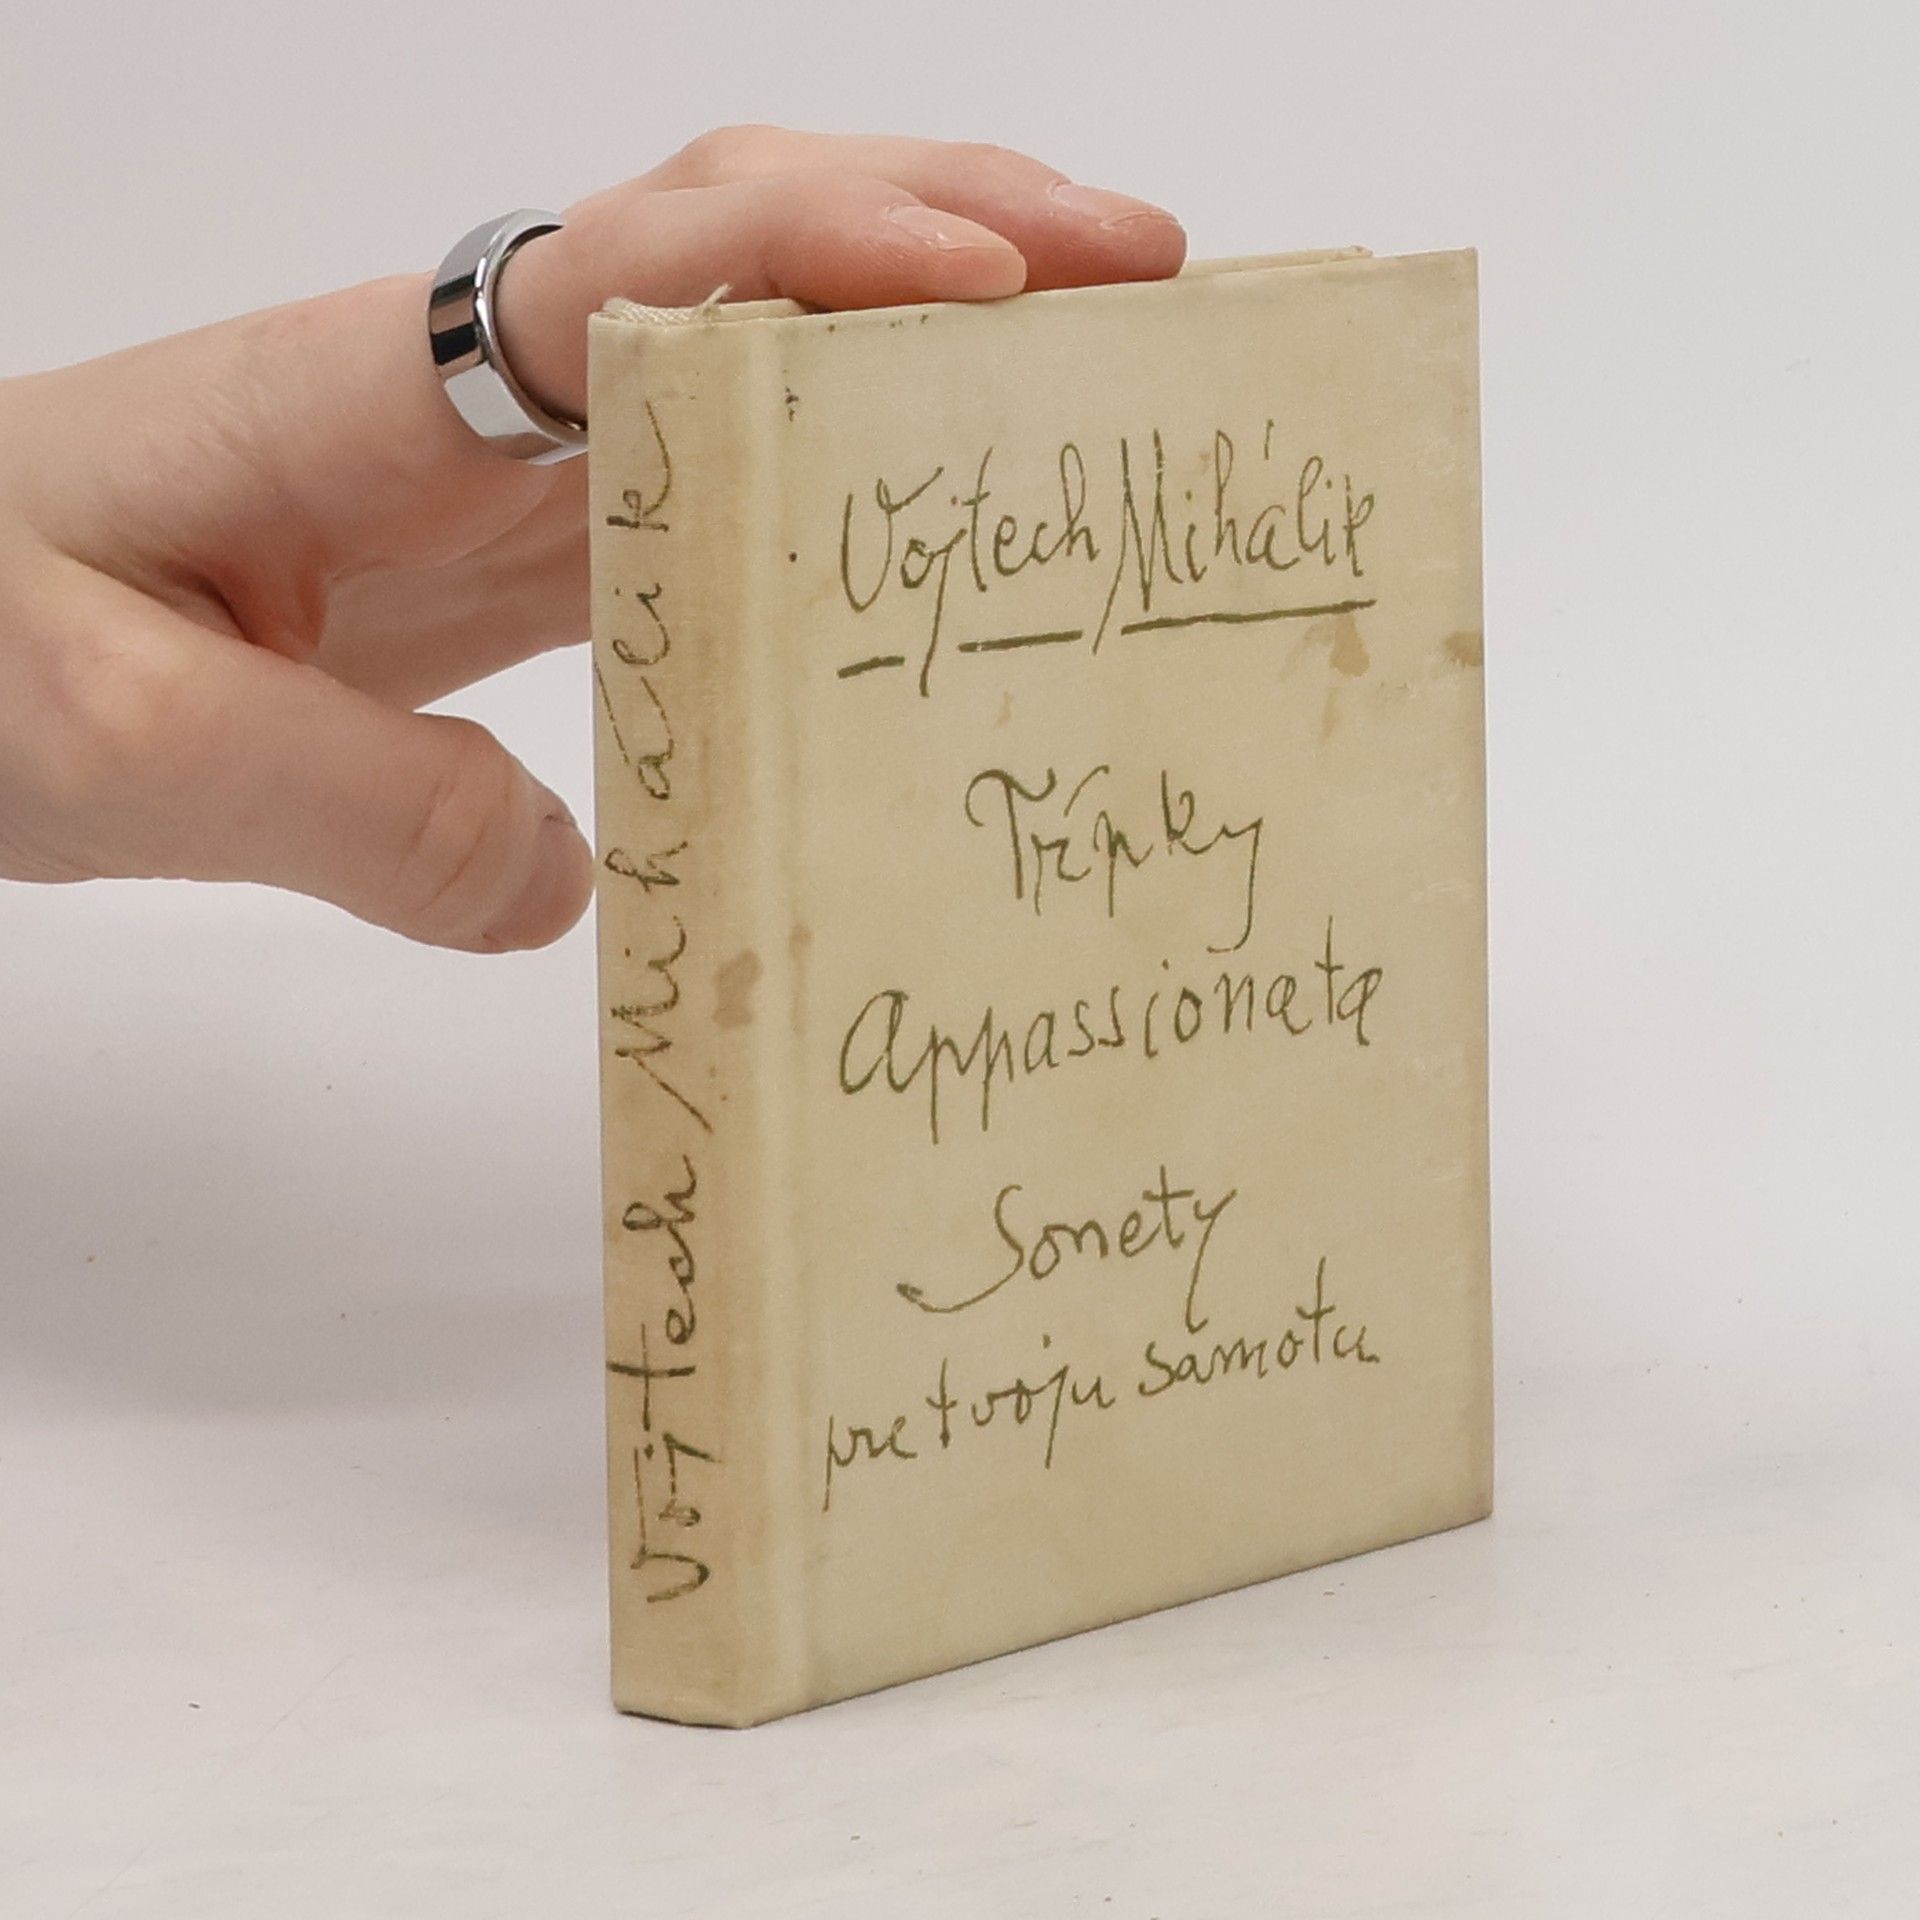 Vojtech Mihálik
Vojtech Mihálik
Tŕpky
Appassionata
Sonety
pre tvoju samotu